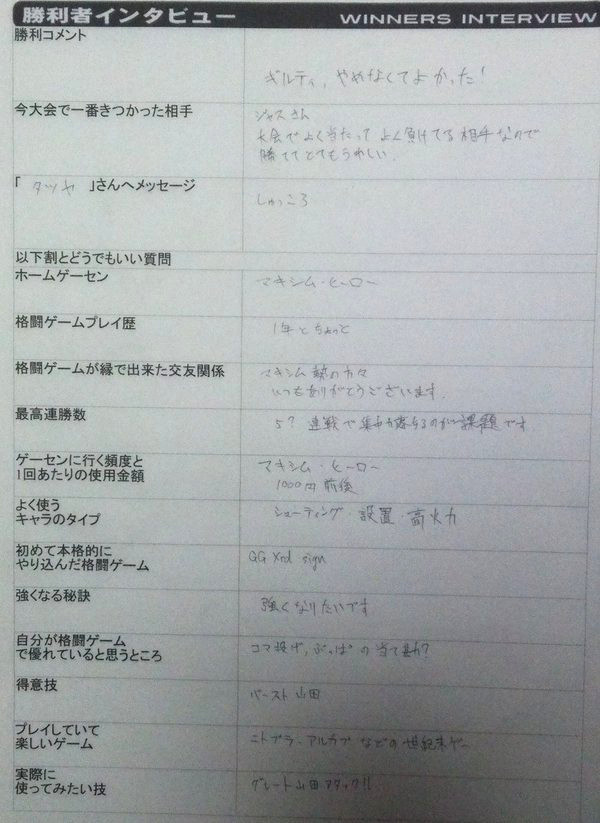 勝利者インタビュー WINNERS INTERVIEW
勝利コメント
ギルティ、やめなくてよかった!
今大会で一番きつかった相手
ジャスさん
大会でよく当たってよく負けてる相手なので
勝ててとてもうれしい。
「 タツヤ 」さんへメッセージ
しゅっころ
以下割とどうでもいい質問
ホームゲーセン
マキシム・ヒーロー
格闘ゲームプレイ歴
1年とちょっと
格闘ゲームが縁で出来た交友関係
マキシム勢の方々
いつもありがとうございます。
最高連勝数
5? 連戦で集中力落ちるのが課題です。
ゲーセンに行く頻度と
1回あたりの使用金額
マキシム・ヒーロー
1000円前後
よく使う
キャラのタイプ
シューティング・設置・高火力
初めて本格的に
やり込んだ格闘ゲーム
GG Xrd sign
強くなる秘訣
強くなりたいです
自分が格闘ゲーム
で優れていると思うところ
コマ投げ,ぶっぱの当て勘?
得意技
バースト山田
プレイしていて
楽しいゲーム
ニトブラ、アルカプなどの世紀末ゲー
実際に
使ってみたい技
グレート山田アタック!!